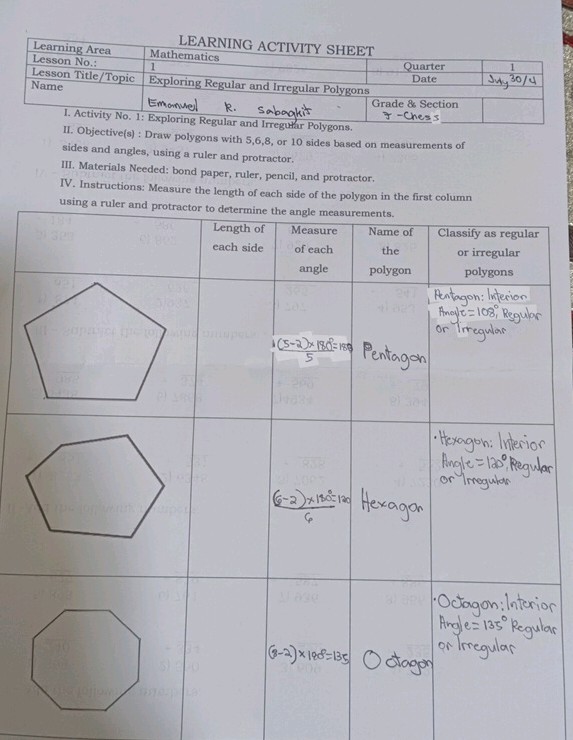 LEARNING ACTIVITY SHEET
Learning Area Mathematics
Lesson No.: 1 Quarter 1
Lesson Title/Topic Exploring Regular and Irregular Polygons Date July 30/4
Name Emanuel R. Sabagkit Grade & Section 7-Chess
I. Activity No. 1: Exploring Regular and Irregular Polygons.
II. Objective(s) : Draw polygons with 5,6,8, or 10 sides based on measurements of
sides and angles, using a ruler and protractor.
III. Materials Needed: bond paper, ruler, pencil, and protractor.
IV. Instructions: Measure the length of each side of the polygon in the first column
using a ruler and protractor to determine the angle measurements.
Length of each side
Measure of each angle
Name of the polygon
Classify as regular or irregular polygons
(5-2)×180°=108
5
Pentagon
Pentagon: Interior
Angle=108°, Regular
or Irregular
(6-2)×180°=120
6
Hexagon
·Hexagon: Interior
Angle=120°, Regular
or Irregular
(8-2)×180°=135
Octagon
·Octagon: Interior
Angle=135° Regular
or Irregular